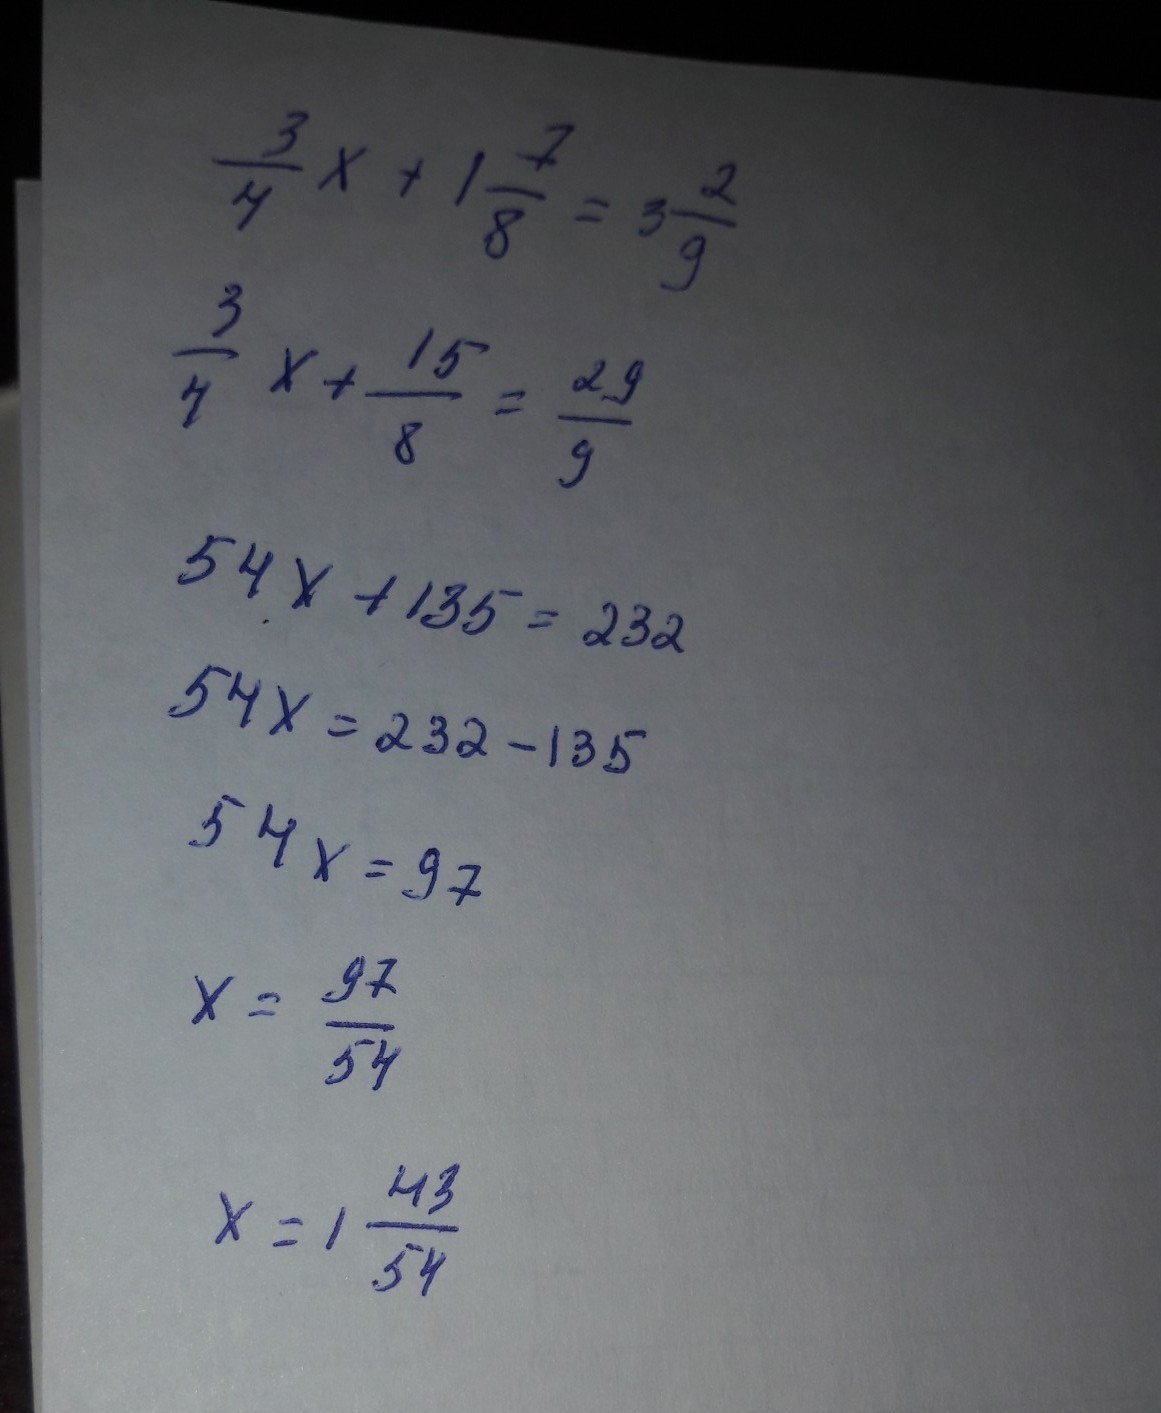 3/4 x + 1 7/8 = 3 2/9
3/4 x + 15/8 = 29/9
54x + 135 = 232
54x = 232 - 135
54x = 97
x = 97/54
x = 1 43/54